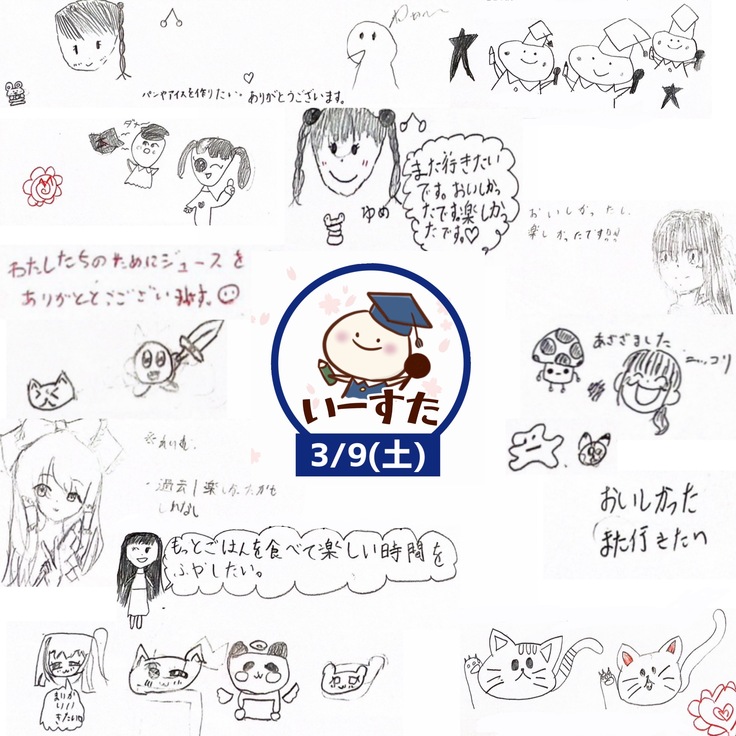 パンやアイスを作りたい。ありがとうございます。
また行きたい
です。おいしかっ
たです。楽しかっ
たです。♡
ゆめ
おいしかったし、
楽しかったです!!!
わたしたちのためにジュースを
ありがととごございます。
いーすた
3/9(土)
あさざました
ニッコリ
おいしかった
また行きたい
もっとごはんを食べて楽しい時間を
ふやしたい。